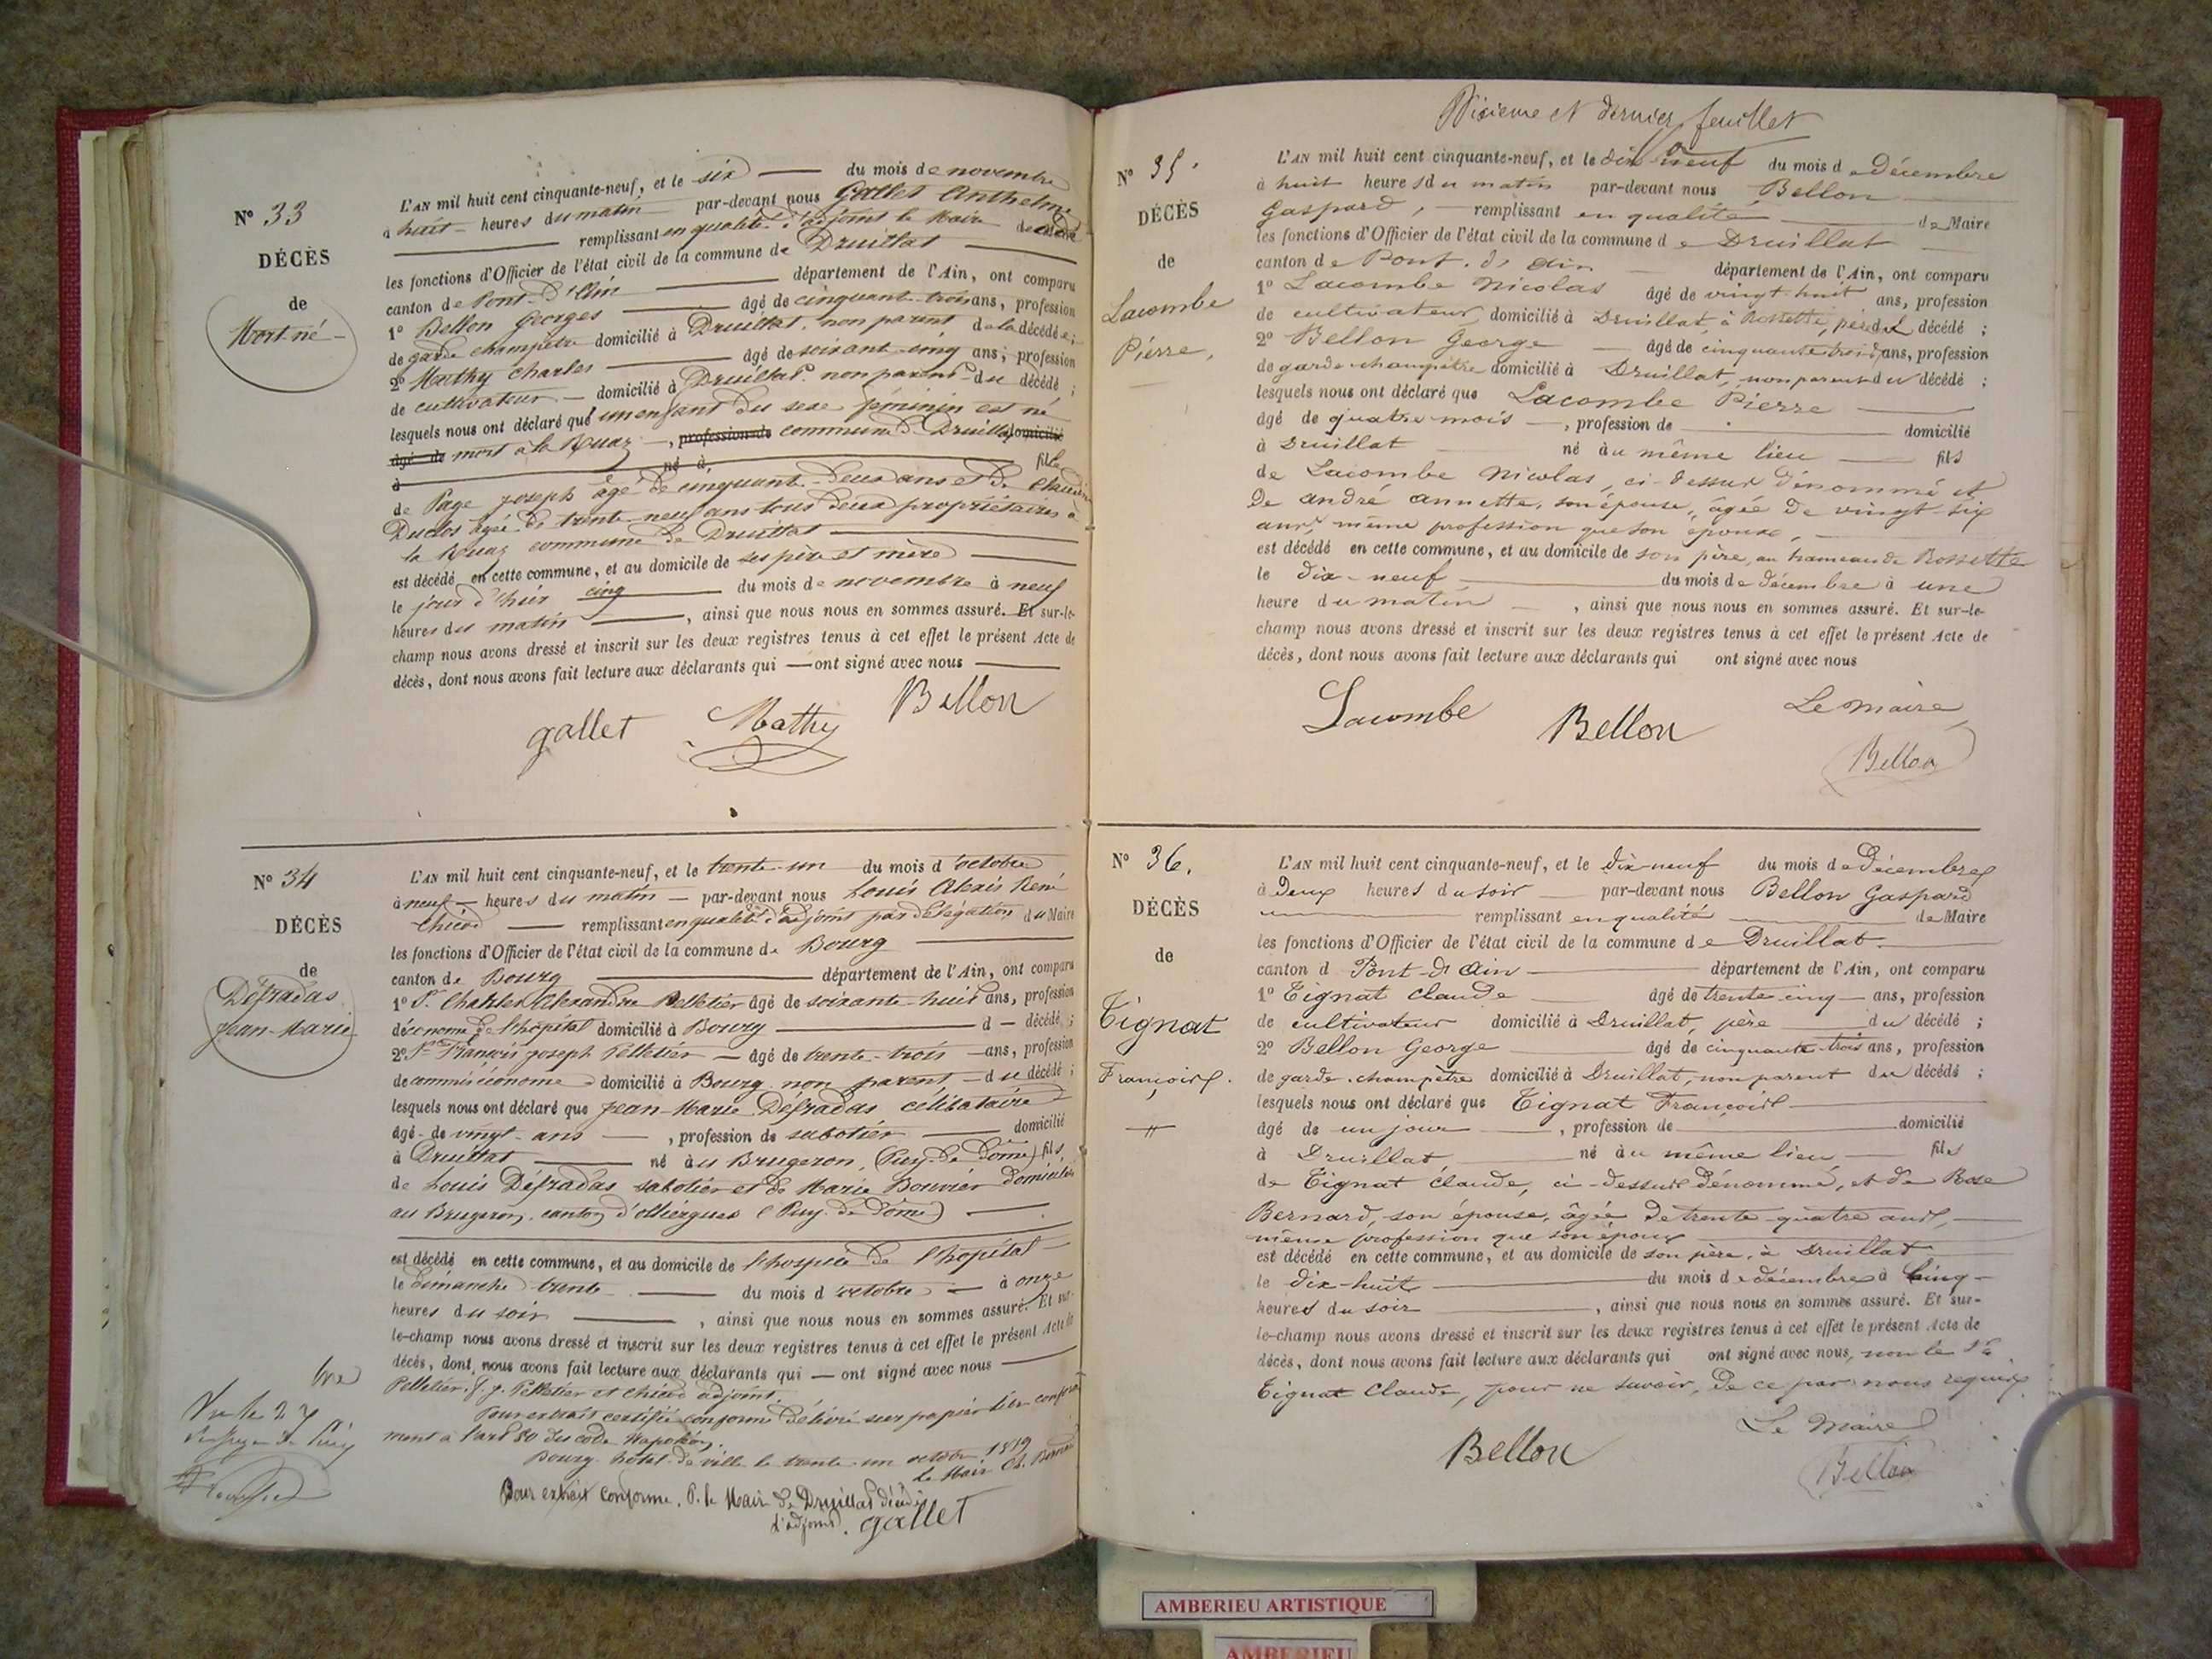 N° 33
DÉCÈS
de
Mort-né
L'AN mil huit cent cinquante-neuf, et le six du mois de novembre
à huit heures du matin par-devant nous Gallet Anthelme
remplissant en qualité d'adjoint le Maire
les fonctions d'Officier de l'état civil de la commune de Druillat
canton de Pont-d'Ain département de l'Ain, ont comparu
1° Bellon Georges âgé de cinquante-trois ans, profession
de garde champêtre domicilié à Druillat, non parent de la décédée ;
2° Mathy Charles âgé de soixante-cinq ans, profession
de cultivateur domicilié à Druillat non parent du décédé ;
lesquels nous ont déclaré que un enfant du sexe féminin est né
âgé de mort à la Ruaz, profession de commune de Druillat domicilié
à né à, fille
de Page Joseph âgé de cinquante-deux ans et de Claudine
Duclos âgée de trente-neuf ans tous deux propriétaires à
la Ruaz commune de Druillat
est décédé en cette commune, et au domicile de ses père et mère
le jour d'hier cinq du mois de novembre à neuf
heures du matin, ainsi que nous nous en sommes assuré. Et sur-le-
champ nous avons dressé et inscrit sur les deux registres tenus à cet effet le présent Acte de
décès, dont nous avons fait lecture aux déclarants qui ont signé avec nous
gallet Mathy Bellon
N° 34
DÉCÈS
de
Défradas
Jean-Marie
L'AN mil huit cent cinquante-neuf, et le trente-un du mois d'octobre
à neuf heures du matin par-devant nous Louis Alexis René
Chicod remplissant en qualité d'adjoint par délégation du Maire
les fonctions d'Officier de l'état civil de la commune de Bourg
canton de Bourg département de l'Ain, ont comparu
1° Sr Charles Alexandre Pelletier âgé de soixante-huit ans, profession
d'économe de l'hôpital domicilié à Bourg d décédé ;
2° Sr François Joseph Pelletier âgé de trente-trois ans, profession
de commis économe domicilié à Bourg non parent du décédé ;
lesquels nous ont déclaré que Jean-Marie Défradas célibataire
âgé de vingt ans, profession de sabotier domicilié
à Druillat né au Brugeron, (Puy-de-Dôme) fils
de Louis Défradas sabotier et de Marie Bouvier domiciliés
au Brugeron canton d'Olliergues (Puy-de-Dôme)
est décédé en cette commune, et au domicile de l'hospice de l'hôpital
le dimanche trente du mois d'octobre à onze
heures du soir, ainsi que nous nous en sommes assuré. Et sur-
le-champ nous avons dressé et inscrit sur les deux registres tenus à cet effet le présent Acte de
décès, dont nous avons fait lecture aux déclarants qui ont signé avec nous
Pelletier, F. J. Pelletier et Chicod adjoint.
Pour extrait certifié conforme délivré sur papier libre conformé
ment à l'art 80 du code Napoléon.
Bourg hôtel de ville le trente-un octobre 1859
le Maire
Pour extrait conforme. P. le Maire de Druillat décédé
l'adjoint. gallet
Vu le 27
Dixième et dernier feuillet
N° 35.
DÉCÈS
de
Lacombe
Pierre,
L'AN mil huit cent cinquante-neuf, et le dix neuf du mois de Décembre
à huit heures du matin par-devant nous Bellon
Gaspard, remplissant en qualité de Maire
les fonctions d'Officier de l'état civil de la commune de Druillat
canton de Pont-d'Ain département de l'Ain, ont comparu
1° Lacombe Nicolas âgé de vingt-huit ans, profession
de cultivateur domicilié à Druillat, à Rossette, père du décédé ;
2° Bellon George âgé de cinquante trois ans, profession
de garde-champêtre domicilié à Druillat, non parent du décédé ;
lesquels nous ont déclaré que Lacombe Pierre
âgé de quatre mois, profession de domicilié
à Druillat né au même lieu fils
de Lacombe Nicolas, ci-dessus dénommé et
de andré annette, son épouse, âgée de vingt-six
ans, même profession que son époux,
est décédé en cette commune, et au domicile de son père, au hameau de Rossette
le dix-neuf du mois de décembre à une
heure du matin, ainsi que nous nous en sommes assuré. Et sur-le-
champ nous avons dressé et inscrit sur les deux registres tenus à cet effet le présent Acte de
décès, dont nous avons fait lecture aux déclarants qui ont signé avec nous
Lacombe Bellon Le Maire
Bellon
N° 36.
DÉCÈS
de
Tignat
François.
L'AN mil huit cent cinquante-neuf, et le dix-neuf du mois de Décembre
à Deux heures du soir par-devant nous Bellon Gaspard
remplissant en qualité de Maire
les fonctions d'Officier de l'état civil de la commune de Druillat.
canton d Pont-d'Ain département de l'Ain, ont comparu
1° Tignat Claude âgé de trente-cinq ans, profession
de cultivateur domicilié à Druillat, père du décédé ;
2° Bellon George âgé de cinquante-trois ans, profession
de garde-champêtre domicilié à Druillat, non parent du décédé ;
lesquels nous ont déclaré que Tignat François
âgé de un jour, profession de domicilié
à Druillat né au même lieu fils
de Tignat Claude, ci-dessus dénommé, et de Rose
Bernard, son épouse, âgée de trente-quatre ans,
même profession que son époux
est décédé en cette commune, et au domicile de son père, à Druillat
le dix-huit du mois de décembre à Cinq
heures du soir, ainsi que nous nous en sommes assuré. Et sur-
le-champ nous avons dressé et inscrit sur les deux registres tenus à cet effet le présent Acte de
décès, dont nous avons fait lecture aux déclarants qui ont signé avec nous, non le Sr
Tignat Claude, pour ne savoir, de ce par nous requis.
Bellon Le Maire
Bellon
AMBERIEU ARTISTIQUE
AMBERIEU